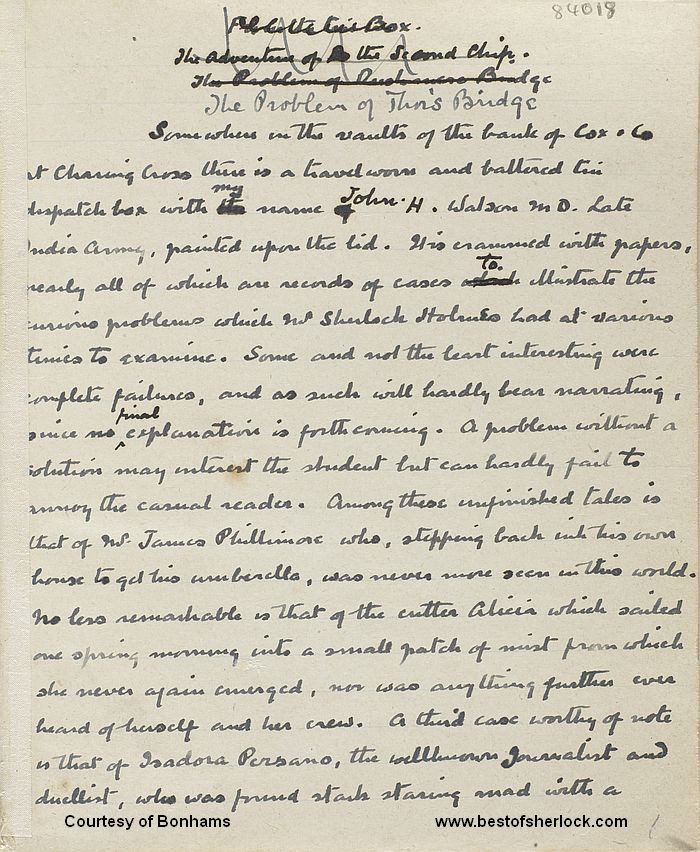 84018
The Adventure of the Second Chip.
The Problem of Bridge
The Problem of Thor's Bridge
Somewhere in the vaults of the bank of Cox & Co
at Charing Cross there is a travel worn and battered tin
dispatch box with my name John. H. Watson M D. Late
India Army, painted upon the lid. It is crammed with papers,
nearly all of which are records of cases to illustrate the
curious problems which Mr Sherlock Holmes had at various
times to examine. Some and not the least interesting were
complete failures, and as such will hardly bear narrating,
since no final explanation is forthcoming. A problem without a
solution may interest the student but can hardly fail to
annoy the casual reader. Among these unfinished tales is
that of Mr James Phillimore who, stepping back into his own
house to get his umberella, was never more seen in this world.
No less remarkable is that of the cutter Alicia which sailed
one spring morning into a small patch of mist from which
she never again emerged, nor was anything further ever
heard of herself and her crew. A third case worthy of note
is that of Isadora Persano, the wellknown Journalist and
duellist, who was found stark staring mad with a
Courtesy of Bonhams
www.bestofsherlock.com